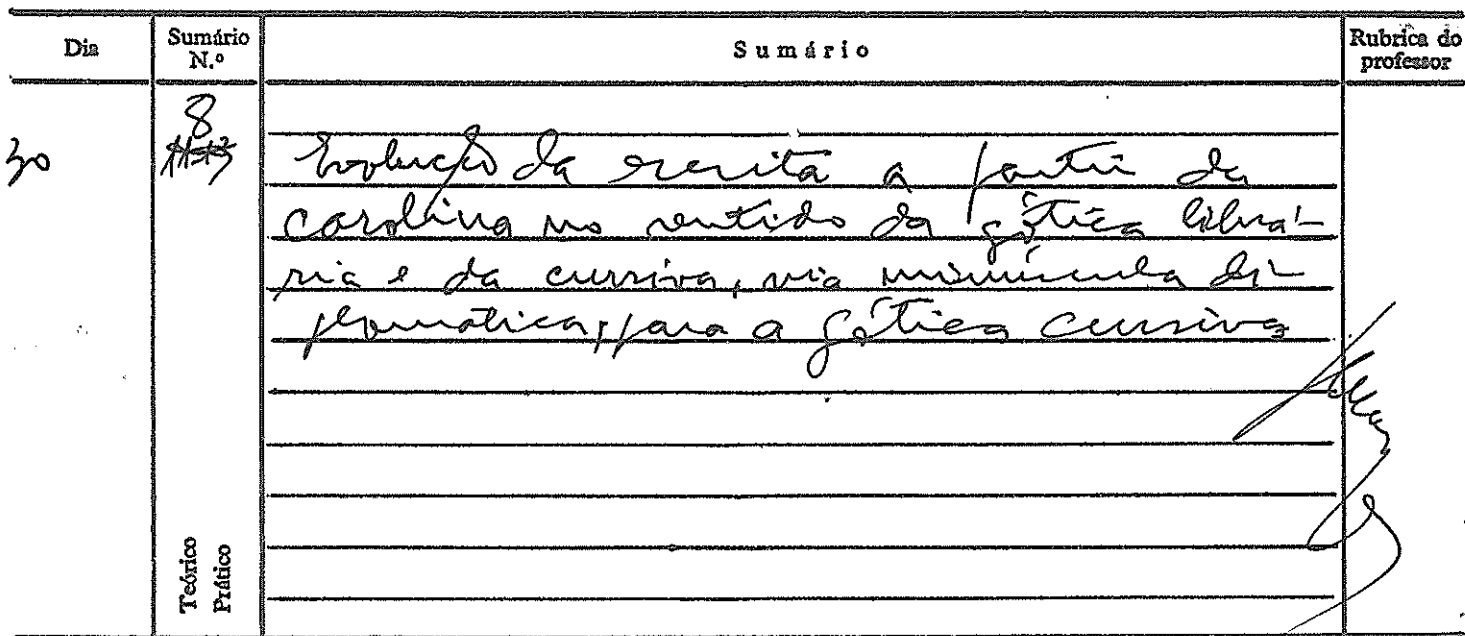 Dia Sumário N.º Sumário Rubrica do professor
8
30
Evolução da escrita a partir da
carolina no sentido da gótica librá-
ria e da cursiva, via minúscula di-
plomática, para a gótica cursiva
Teórico
Prático